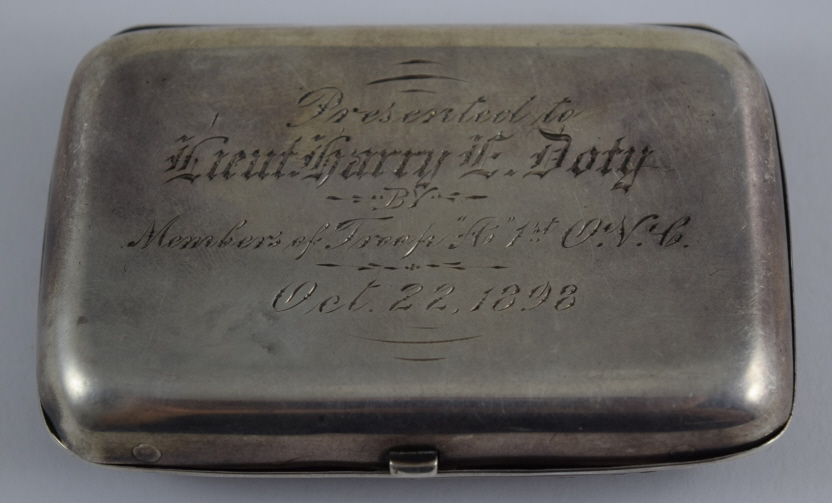 Presented to
Lieut. Harry E. Doty
BY
Members of Troop "A" 1st O.V.C.
Oct. 22, 1898